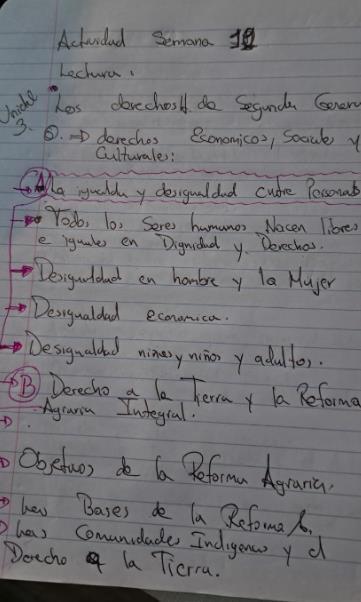 Actividad Semana 12
Lectura.
Unidad 3.
Los derechos de Segunda Gener
⇒ derechos Economicos, Sociales y
Culturales:
A la igualdad y desigualdad entre Personas
Todos los Seres humanos Nacen libres
e iguales en Dignidad y Derechos.
Desigualdad en hombre y la Mujer
Desigualdad economica.
Desigualdad niñas y niños y adultos.
B Derecho a la Tierra y la Reforma
Agraria Integral.
Objetivos de la Reforma Agraria.
las Bases de la Reforma A.
las Comunidades Indigenas y el
Derecho a la Tierra.